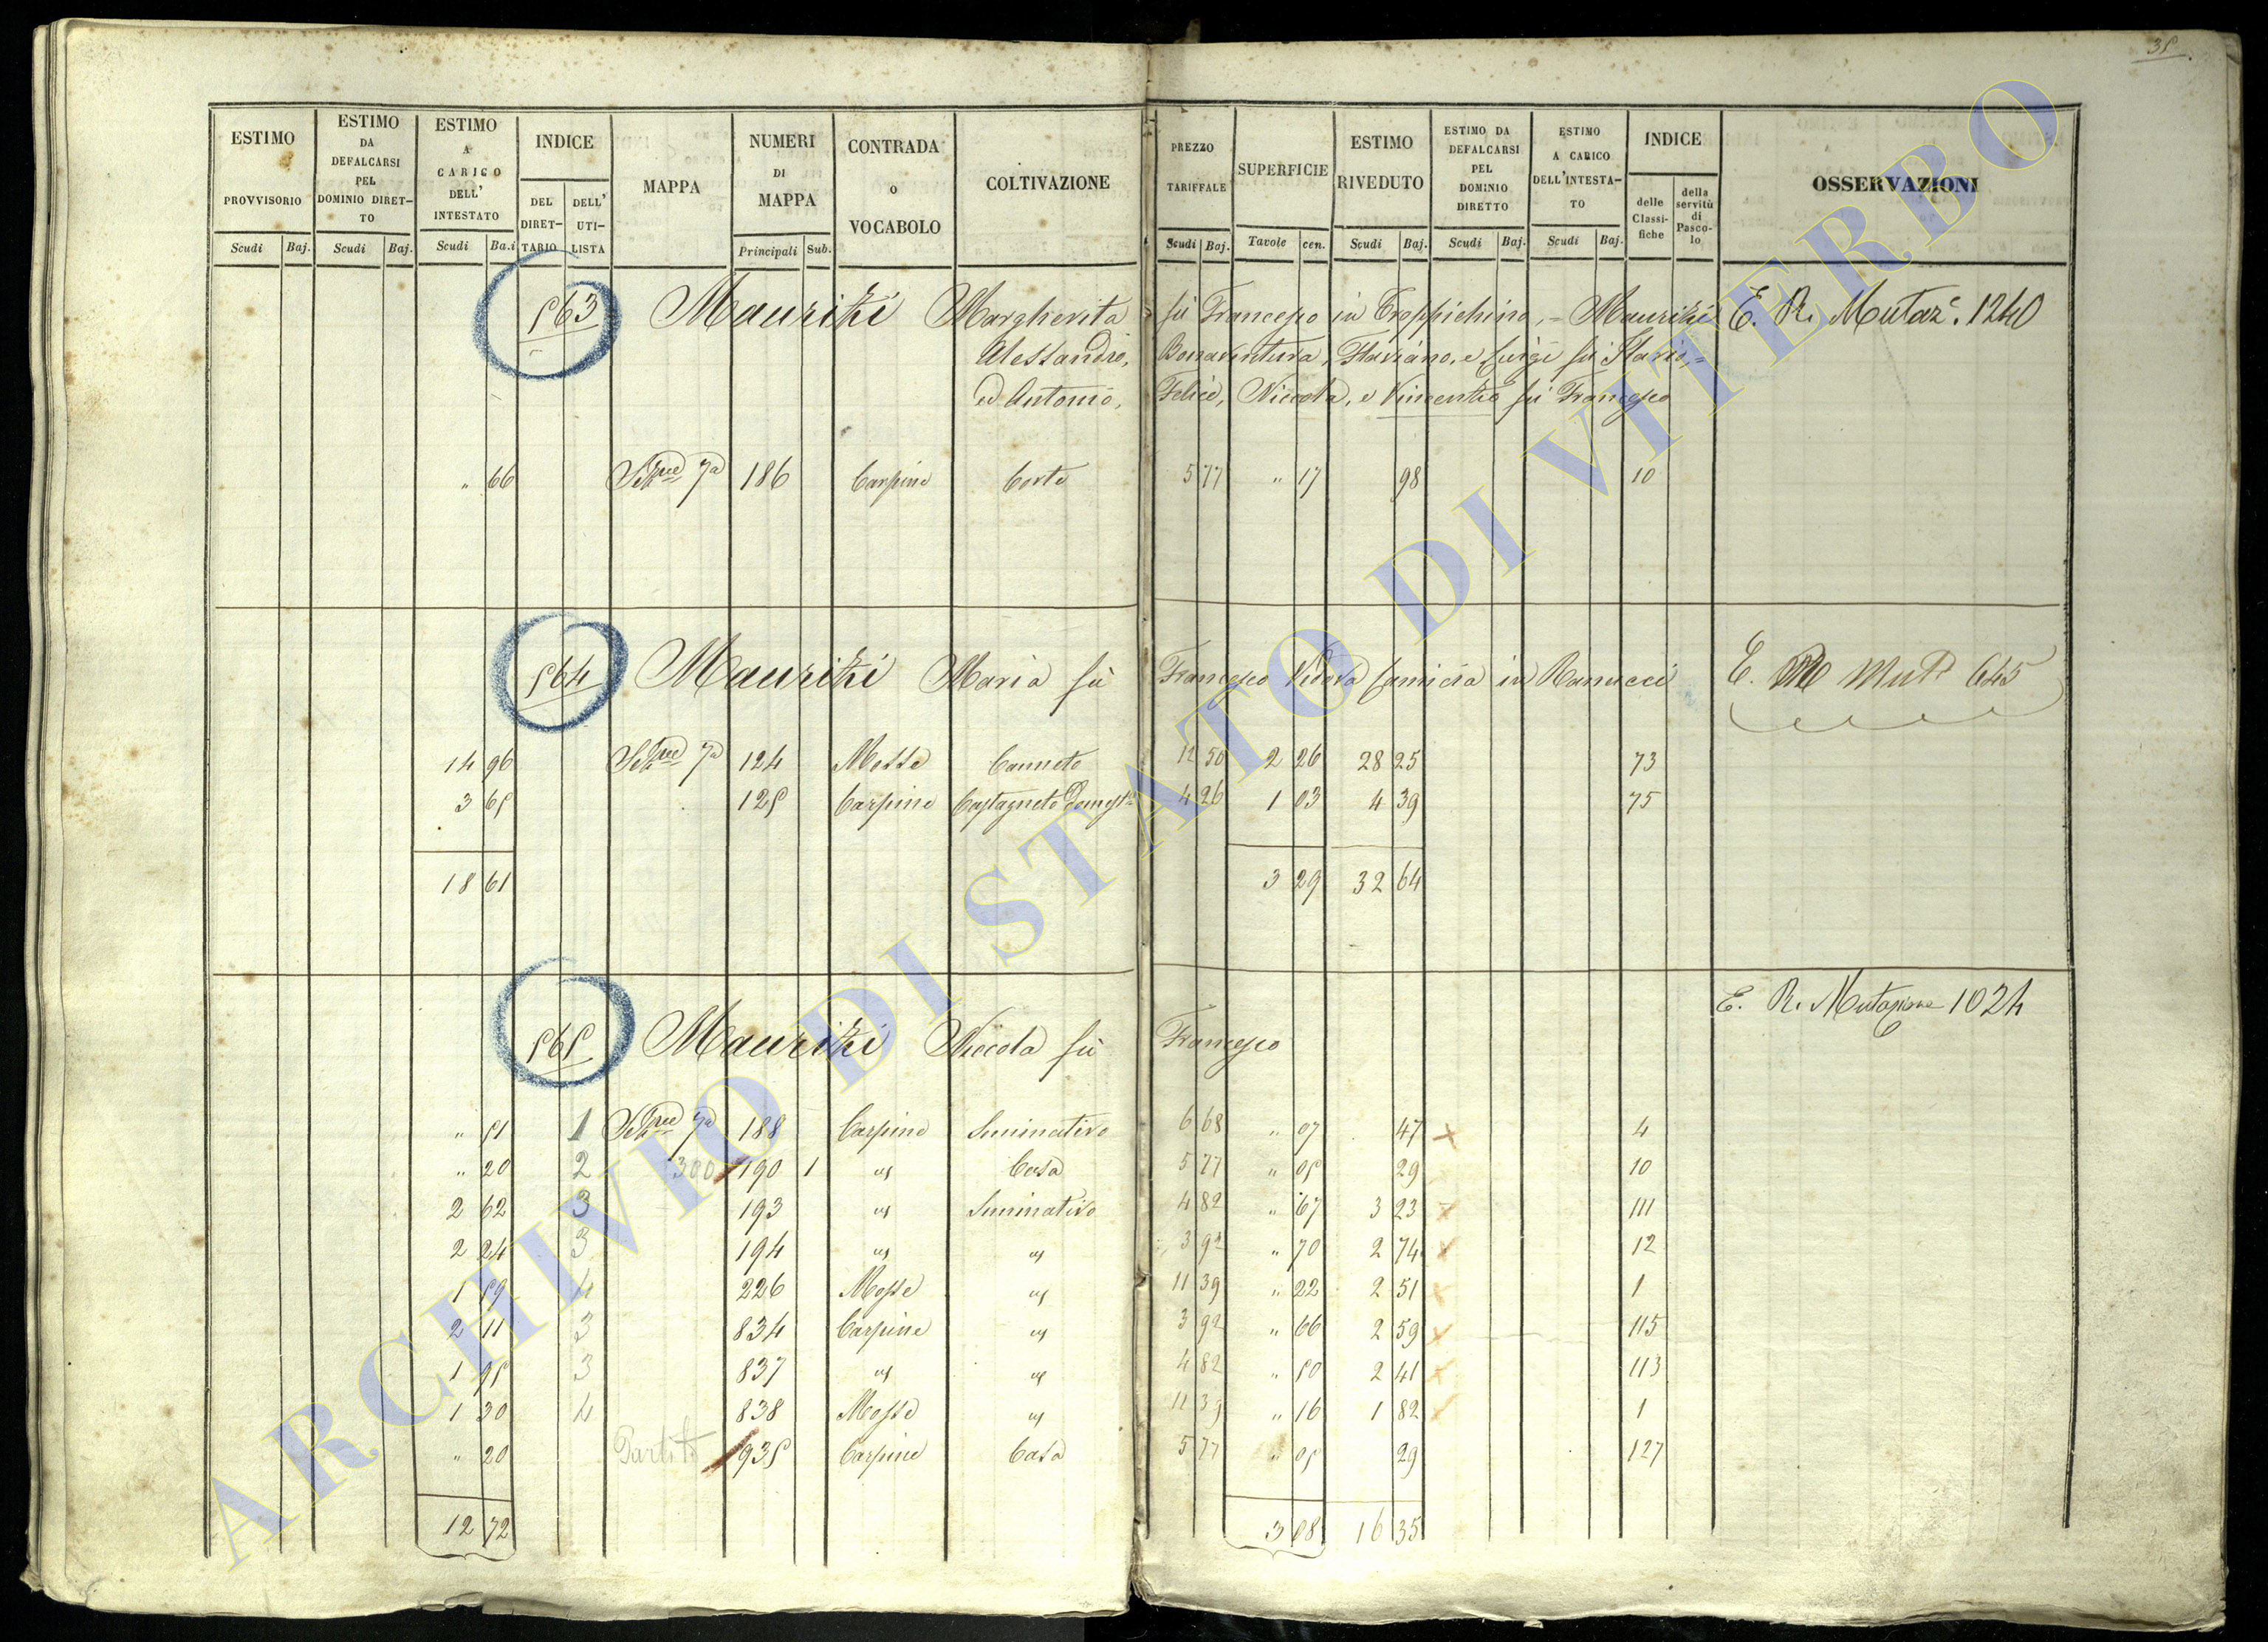 35
ESTIMO PROVVISORIO Scudi Baj. ESTIMO DA DEFALCARSI PEL DOMINIO DIRET-TO Scudi Baj. ESTIMO A CARICO DELL' INTESTATO Scudi Ba.i INDICE DEL DIRET-TARIO DELL' UTI-LISTA MAPPA NUMERI DI MAPPA Principali Sub. CONTRADA O VOCABOLO COLTIVAZIONE PREZZO TARIFFALE Scudi Baj. SUPERFICIE Tavole cen. ESTIMO RIVEDUTO Scudi Baj. ESTIMO DA DEFALCARSI PEL DOMINIO DIRETTO Scudi Baj. ESTIMO A CARICO DELL'INTESTA-TO Scudi Baj. INDICE delle Classi-fiche della servitù di Pasco-lo OSSERVAZIONI
563 Maurizi Margherita fù Francesco in Troppichino, = Maurizi E. R. Mutaz.e 1240
Alessandro, Bonaventura, Flaviano, e Luigi fù Ilario, =
ed Antonio, Felice, Niccola, e Vincenzo fù Francesco
" 66 7a 186 Carpine Corte 5 77 " 17 98 10
564 Maurizi Maria fù Francesco Vedova Camicia in Ranucci E. Mut 645
14 96 7a 124 Mosse Canneto 12 50 2 26 28 25 73
3 65 125 Carpine Castagneto Domest. 4 26 1 03 4 39 75
18 61 3 29 32 64
E. R. Mutazione 1024
565 Maurizi Niccola fù Francesco
" 51 1 7a 188 Carpine Seminativo 6 68 " 07 47 x 4
" 20 2 300 190 1 " Casa 5 77 " 05 29 10
2 62 3 193 " Seminativo 4 82 " 67 3 23 x 111
2 24 3 194 " " 3 92 " 70 2 74 x 12
1 59 4 226 Mosse " 11 39 " 22 2 51 x 1
2 11 3 834 Carpine " 3 92 " 66 2 59 x 115
1 95 3 837 " " 4 82 " 50 2 41 x 113
1 30 4 838 Mosse " 11 39 " 16 1 82 x 1
" 20 935 Carpine Casa 5 77 " 05 29 127
12 72 3 08 16 35
ARCHIVIO DI STATO DI VITERBO